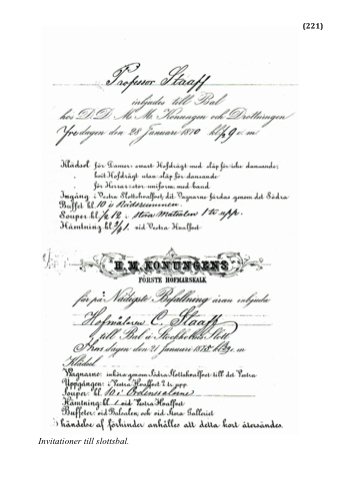 (221)
Professor Staaff
inbjudes till Bal
hos D.D. M.M. Konungen och Drottningen
Fredagen den 28 Januari 1870 kl. ½9 e.m
Klädsel för Damer: svart Hofdrägt med släp för icke dansande;
hvit Hofdrägt utan släp för dansande
för Herrar: stor uniform med band
Ingång i Vestra Slottshvalfvet, dit Vagnarne köras genom det Södra
Buffet kl. 10 i
Souper kl. ½ 12 i stora 1 tr. upp.
Hämtning kl. ½1 vid Vestra Hvalfvet
H.M. KONUNGENS
FÖRSTE HOFMARSKALK
får på Nådigste Befallning äran inbjuda
Hofmålaren C. Staaff
till Bal å Stockholms Slott
dagen den 21 Januari
Klädsel
Vagnarne: inköra genom Södra Slottshvalfvet till det Vestra
Uppgången: i Vestra Hvalfvet 2 tr. upp.
Souper: kl. 10 i Ordenssalarne
Hämtning: kl. 1 vid Vestra Hvalfvet
Buffeter: vid Balsalen och vid Stora Galleriet
I händelse af förhinder anhålles att detta kort återsändes.
Invitationer till slottsbal.